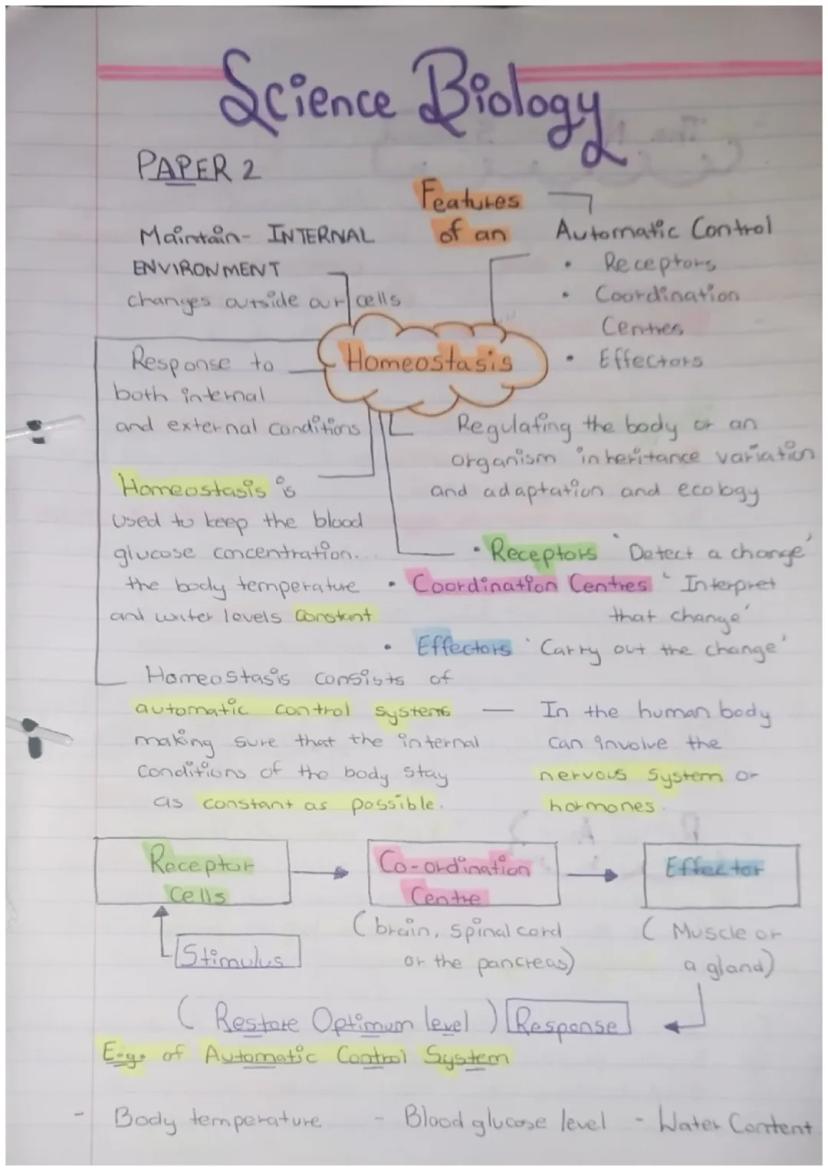 Science Biology
PAPER 2
Features
of an
Automatic Control
• Receptors
• Coordination
Centres
• Effectors
Maintain- INTERNAL
ENVIRONMENT
changes outside our cells
Homeostasis
Response to
both internal
and external conditions
Regulating the body or an
organism inheritance variation
and adaptation and ecology
Homeostasis is
used to keep the blood
glucose concentration.
the body temperature
and water levels constant
• Receptors 'Detect a change'
• Coordination Centres ' Interpret
that change'
• Effectors 'Carry out the change'
Homeostasis consists of
automatic control systems
making sure that the internal
conditions of the body stay
as constant as possible.
— In the human body
can involve the
nervous system or
hormones.
Receptor
Cells
Co-ordination
Centre
Effector
(brain, spinal cord
or the pancreas)
( Muscle or
a gland)
Stimulus
( Restore Optimum level ) Response
E.g. of Automatic Control System
- Body temperature - Blood glucose level - Water Content